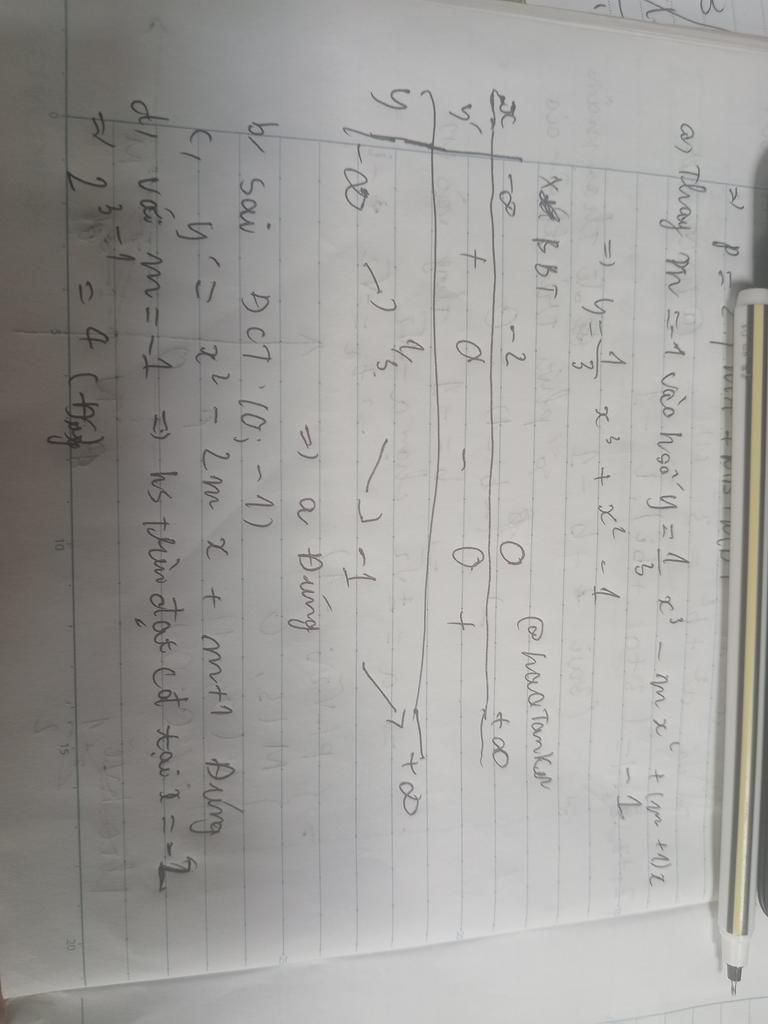 a, Thay m = -1 vào hsố y = 1/3 x³ - mx² + (m+1)x - 1
=> y = 1/3 x³ + x² - 1
BBT
@hoaTankr
x -∞ -2 0 +∞
y' + 0 - 0 +
y -∞ 1/3 -1 +∞
=> a Đúng
b, Sai ĐCT (0; -1)
c, y' = x² - 2mx + m+1 Đúng
d, với m = -1 => hs trên đạt cđ tại x = -2
=> 2³⁻¹ = 4 (Đúng)